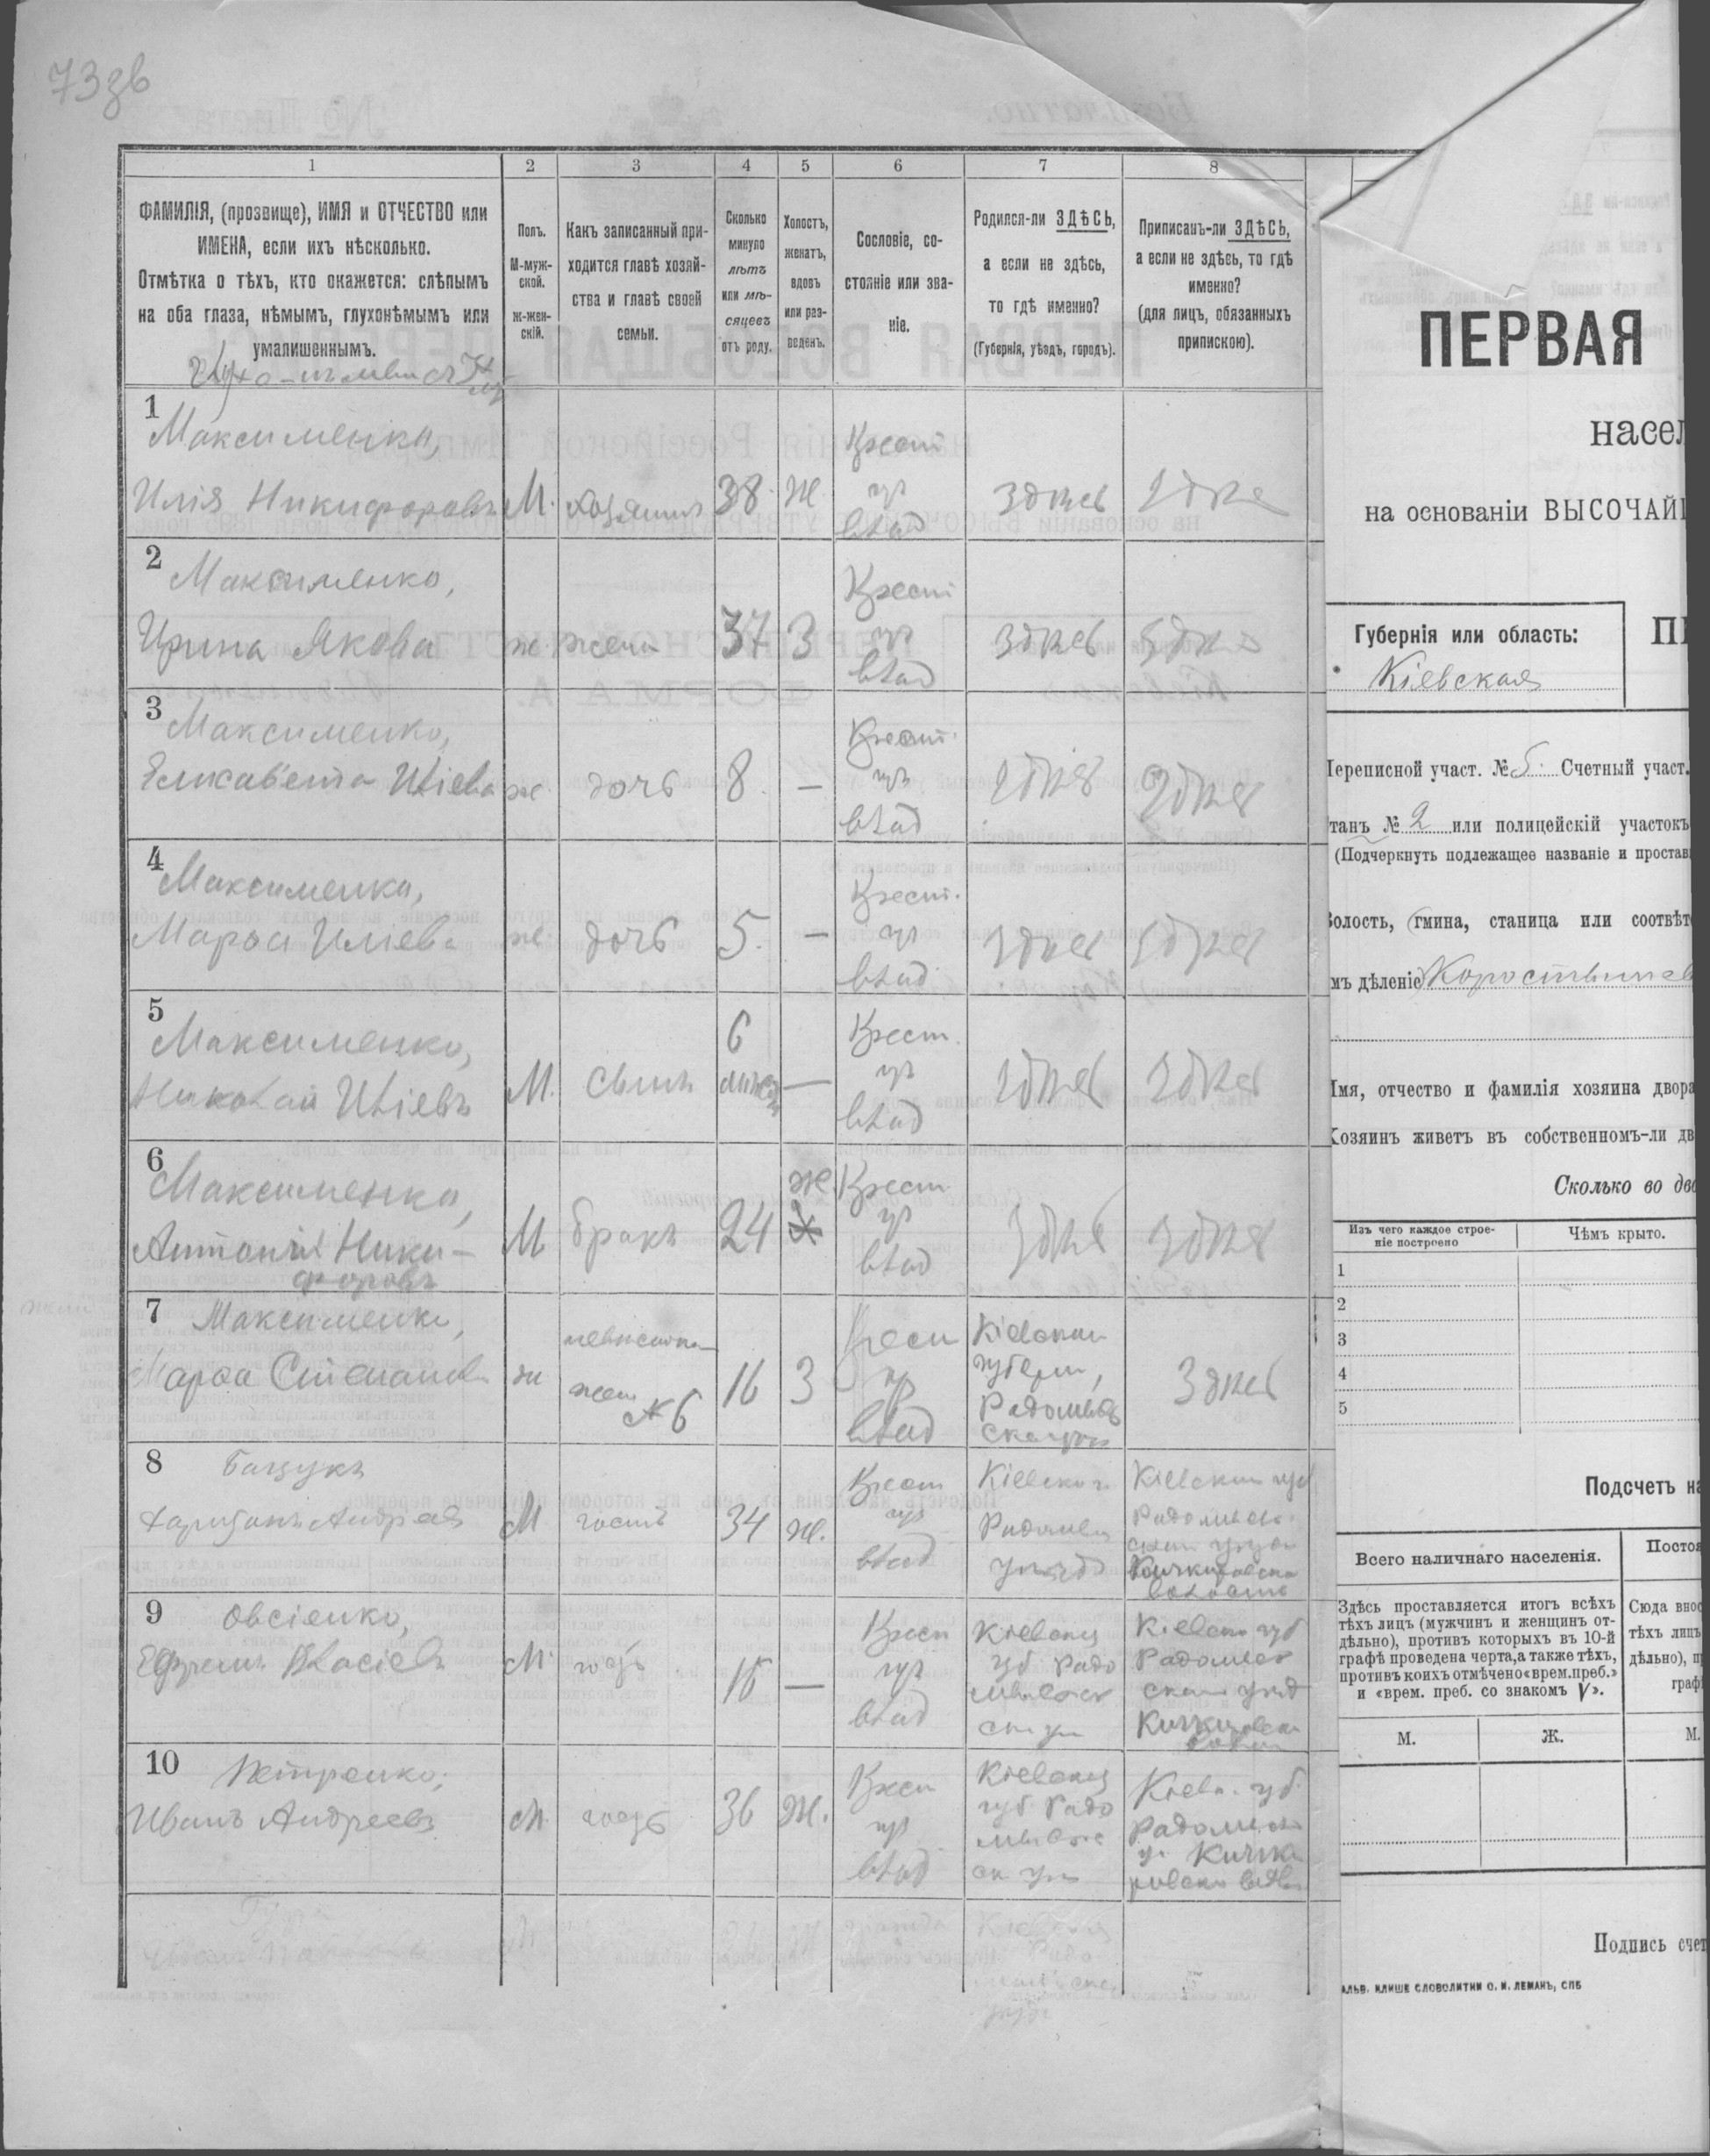 73зв
1 2 3 4 5 6 7 8
ФАМИЛІЯ, (прозвище), ИМЯ и ОТЧЕСТВО или
ИМЕНА, если ихъ нѣсколько.
Отмѣтка о тѣхъ, кто окажется: слѣпымъ
на оба глаза, нѣмымъ, глухонѣмымъ или
умалишеннымъ.
Полъ.
М-муж-
ской.
ж-жен-
скій.
Какъ записанный при-
ходится главѣ хозяй-
ства и главѣ своей
семьи.
Сколько
минуло
лѣтъ
или мѣ-
сяцевъ
отъ роду.
Холостъ,
женатъ,
вдовъ
или раз-
веденъ.
Сословіе, со-
стояніе или зва-
ніе.
Родился-ли ЗДѢСЬ,
а если не здѣсь,
то гдѣ именно?
(Губернія, уѣздъ, городъ).
Приписанъ-ли ЗДѢСЬ,
а если не здѣсь, то гдѣ
именно?
(для лицъ, обязанныхъ
припискою).
1
Максименко,
Илія Никифоровъ М. хозяинъ 38 ж Крест
из
влад
здѣсь здѣсь
2
Максименко,
Ирина Якова ж. жена 37 З Крест
из
влад
здѣсь здѣсь
3
Максименко,
Елисавета Иліева ж дочь 8 — Крест.
из
влад
здѣсь здѣсь
4
Максименко,
Марѳа Иліева ж. дочь 5. — Крест.
из
влад
здѣсь здѣсь
5
Максименко,
Николай Иліевъ М. сынъ 6
мѣсяц — Крест.
из
влад
здѣсь здѣсь
6
Максименко,
Антоній Ники-
форовъ
М братъ 24 ж Крест
из
влад
здѣсь здѣсь
7
Максименко,
Марѳа Степанова ж невѣстка
жена №6 16 З Крест
из
влад
Кіевской
губерн,
Радомысль
ска
здѣсь
8
Харитонъ Андреев М гость 34 ж. Крест
из
влад
Кіевской
Радомысл
уѣзд
Кіевской губ
Радомысль
ской
волость
9
Овсіенко,
Ефремъ Власіевъ М. гость 15 — Крест
из
влад
Кіевской
губ Радо
мысльск
Кіевской губ
Радомысль
ской уѣзд
10
Петренко,
Иванъ Андреевъ М. гость 36 Ж. Крест
из
влад
Кіевской
губ Радо
мысльс
Кіев. губ.
Радомысль
ПЕРВАЯ
насел
на основаніи ВЫСОЧАЙ
Губернія или область:
Кіевская
Переписной участ. № 5. Счетный участ.
танъ № 2 или полицейскій участокъ
(Подчеркнуть подлежащее названіе и простав
Волость, гмина, станица или соотвѣт
мъ дѣленіе) Коростышев
Имя, отчество и фамилія хозяина двора
Хозяинъ живетъ въ собственномъ-ли дв
Сколько во дво
Изъ чего каждое строе-
ніе построено
Чѣмъ крыто.
1
2
3
4
5
Подсчетъ на
Всего наличнаго населенія.
Постоя
Здѣсь проставляется итогъ всѣхъ
тѣхъ лицъ (мужчинъ и женщинъ от-
дѣльно), противъ которыхъ въ 10-й
графѣ проведена черта, а также тѣхъ,
противъ коихъ отмѣчено «врем. преб.»
и «врем. преб. со знакомъ V».
Сюда внос
тѣхъ лицъ
дѣльно), п
граф
М. Ж. М.
Подпись счет
АЛЬВ. КЛИШЕ СЛОВОЛИТНИ О. И. ЛЕМАНЪ, СПБ